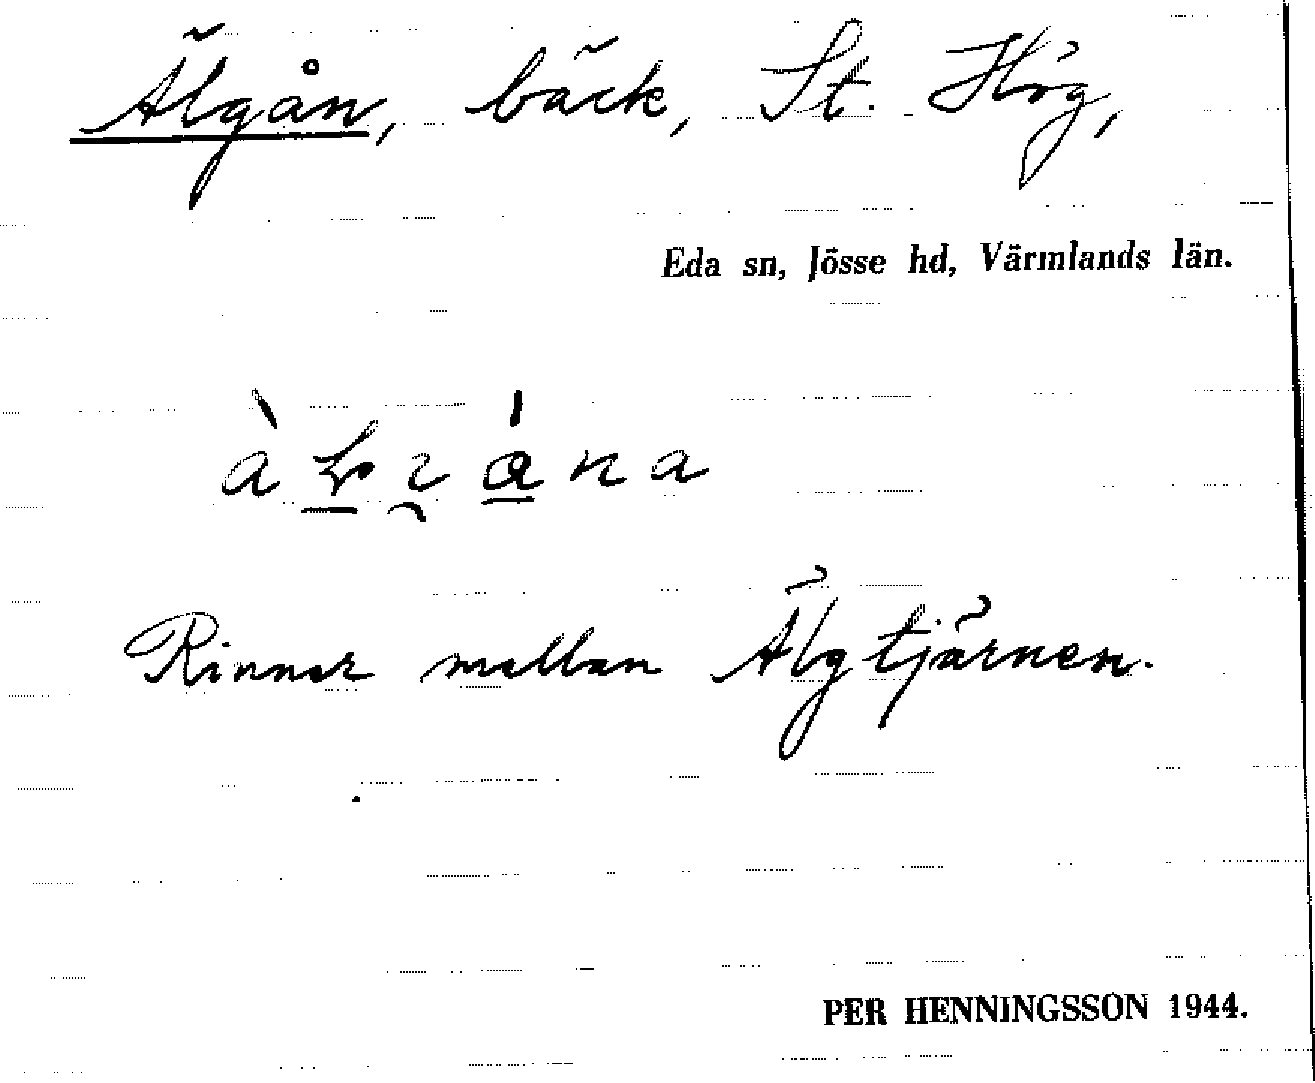 Älgån, bäck, St. Hög,
Eda sn, Jösse hd, Värmlands län.
Rinner mellan Älgtjärnen.
PER HENNINGSSON 1944.